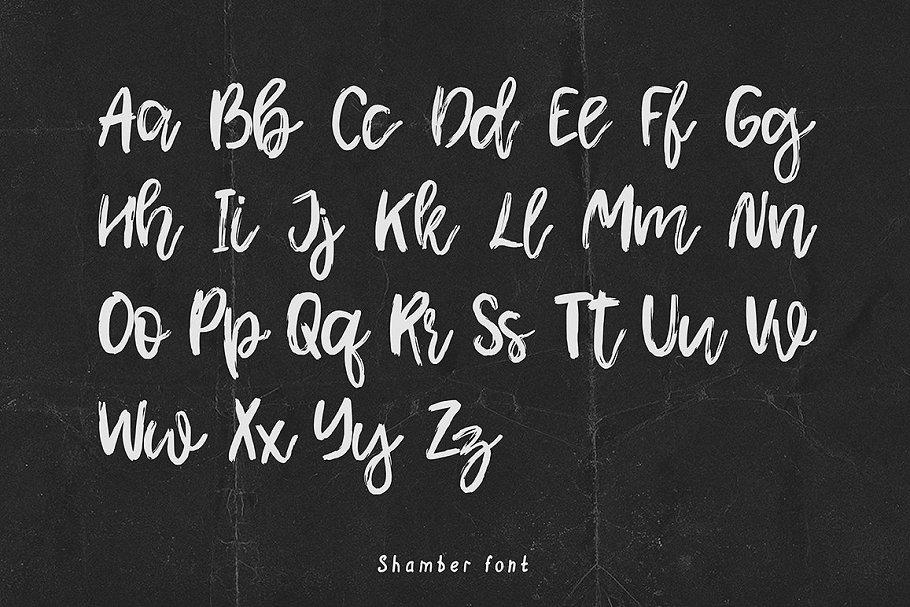 Aa Bb Cc Dd Ee Ff Gg
Hh Ii Jj Kk Ll Mm Nn
Oo Pp Qq Rr Ss Tt Uu Vv
Ww Xx Yy Zz
Shamber font